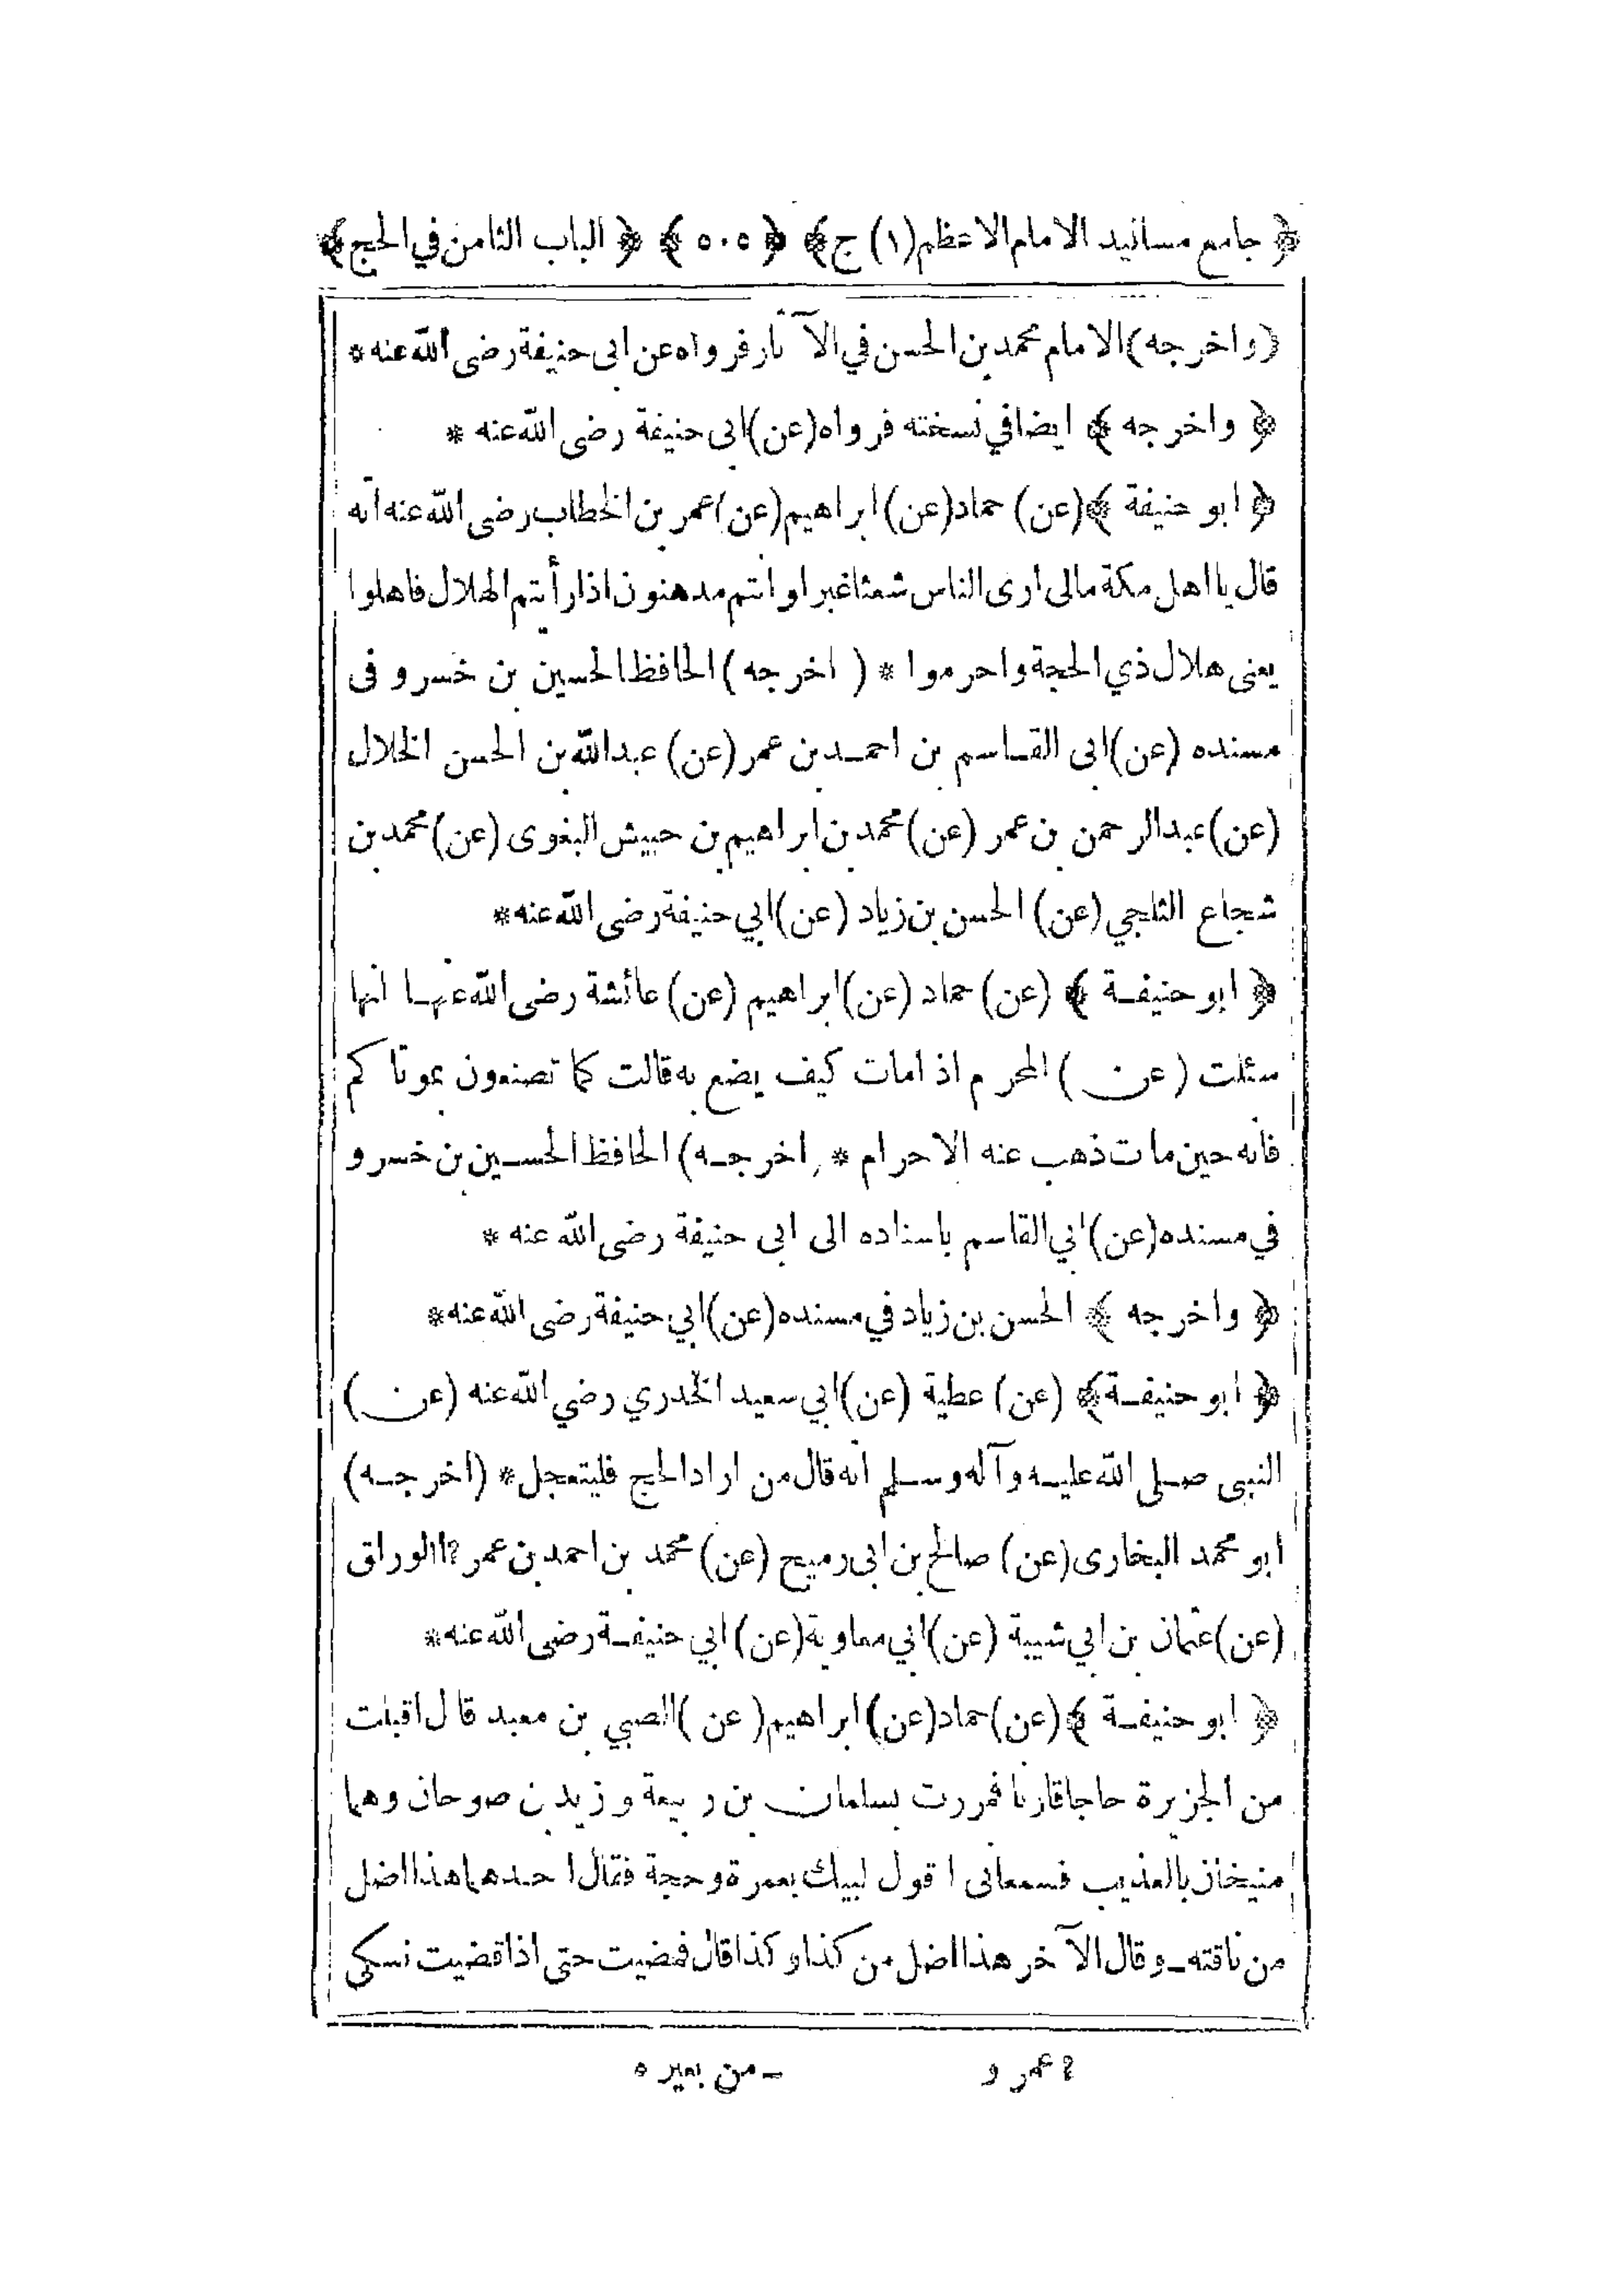 ﴿ جامع مسانيد الامام الاعظم (١) ج ﴾ ﴿ ٥٠٥ ﴾ ﴿ الباب الثامن في الحج ﴾
(واخرجه) الامام محمد بن الحسن في الآثار فرواه عن ابى حنيفة رضى الله عنه *
﴿ واخرجه ﴾ ايضا في نسخته فرواه (عن) ابى حنيفة رضى الله عنه *
﴿ ابو حنيفة ﴾ (عن) حماد (عن) ابراهيم (عن) عمر بن الخطاب رضى الله عنه انه
قال يا اهل مكة مالى ارى الناس شعثا غبرا وانتم مدهنون اذا رأيتم الهلال فاهلوا
يعنى هلال ذي الحجة واحرموا * (اخرجه) الحافظ الحسين بن خسرو فى
مسنده (عن) ابى القاسم بن احمد بن عمر (عن) عبدالله بن الحسن الخلال
(عن) عبدالرحمن بن عمر (عن) محمد بن ابراهيم بن حبيش البغوى (عن) محمد بن
شجاع الثلجي (عن) الحسن بن زياد (عن) ابي حنيفة رضى الله عنه *
﴿ ابو حنيفة ﴾ (عن) حماد (عن) ابراهيم (عن) عائشة رضى الله عنها انها
سئلت (عن) المحرم اذا مات كيف يضع به قالت كما تصنعون بموتاكم
فانه حين مات ذهب عنه الاحرام * (اخرجه) الحافظ الحسين بن خسرو
في مسنده (عن) ابي القاسم باسناده الى ابى حنيفة رضى الله عنه *
﴿ واخرجه ﴾ الحسن بن زياد في مسنده (عن) ابي حنيفة رضى الله عنه *
﴿ ابو حنيفة ﴾ (عن) عطية (عن) ابي سعيد الخدري رضي الله عنه (عن)
النبى صلى الله عليه وآله وسلم انه قال من اراد الحج فليتعجل * (اخرجه)
ابو محمد البخارى (عن) صالح بن ابى رميح (عن) محمد بن احمد بن عمر ؟ الوراق
(عن) عثمان بن ابي شيبة (عن) ابي معاوية (عن) ابي حنيفة رضى الله عنه *
﴿ ابو حنيفة ﴾ (عن) حماد (عن) ابراهيم (عن) الصبي بن معبد قال اقبلت
من الجزيرة حاجا قارنا فمررت بسلمان بن ربيعة وزيد بن صوحان وهما
منيخان بالعذيب فسمعانى اقول لبيك بعمرة وحجة فقال احدهما هذا اضل
من ناقته ـ وقال الآخر هذا اضل من كذا وكذا قال فمضيت حتى اذا قضيت نسكى
؟ عمرو ـ من بعيره